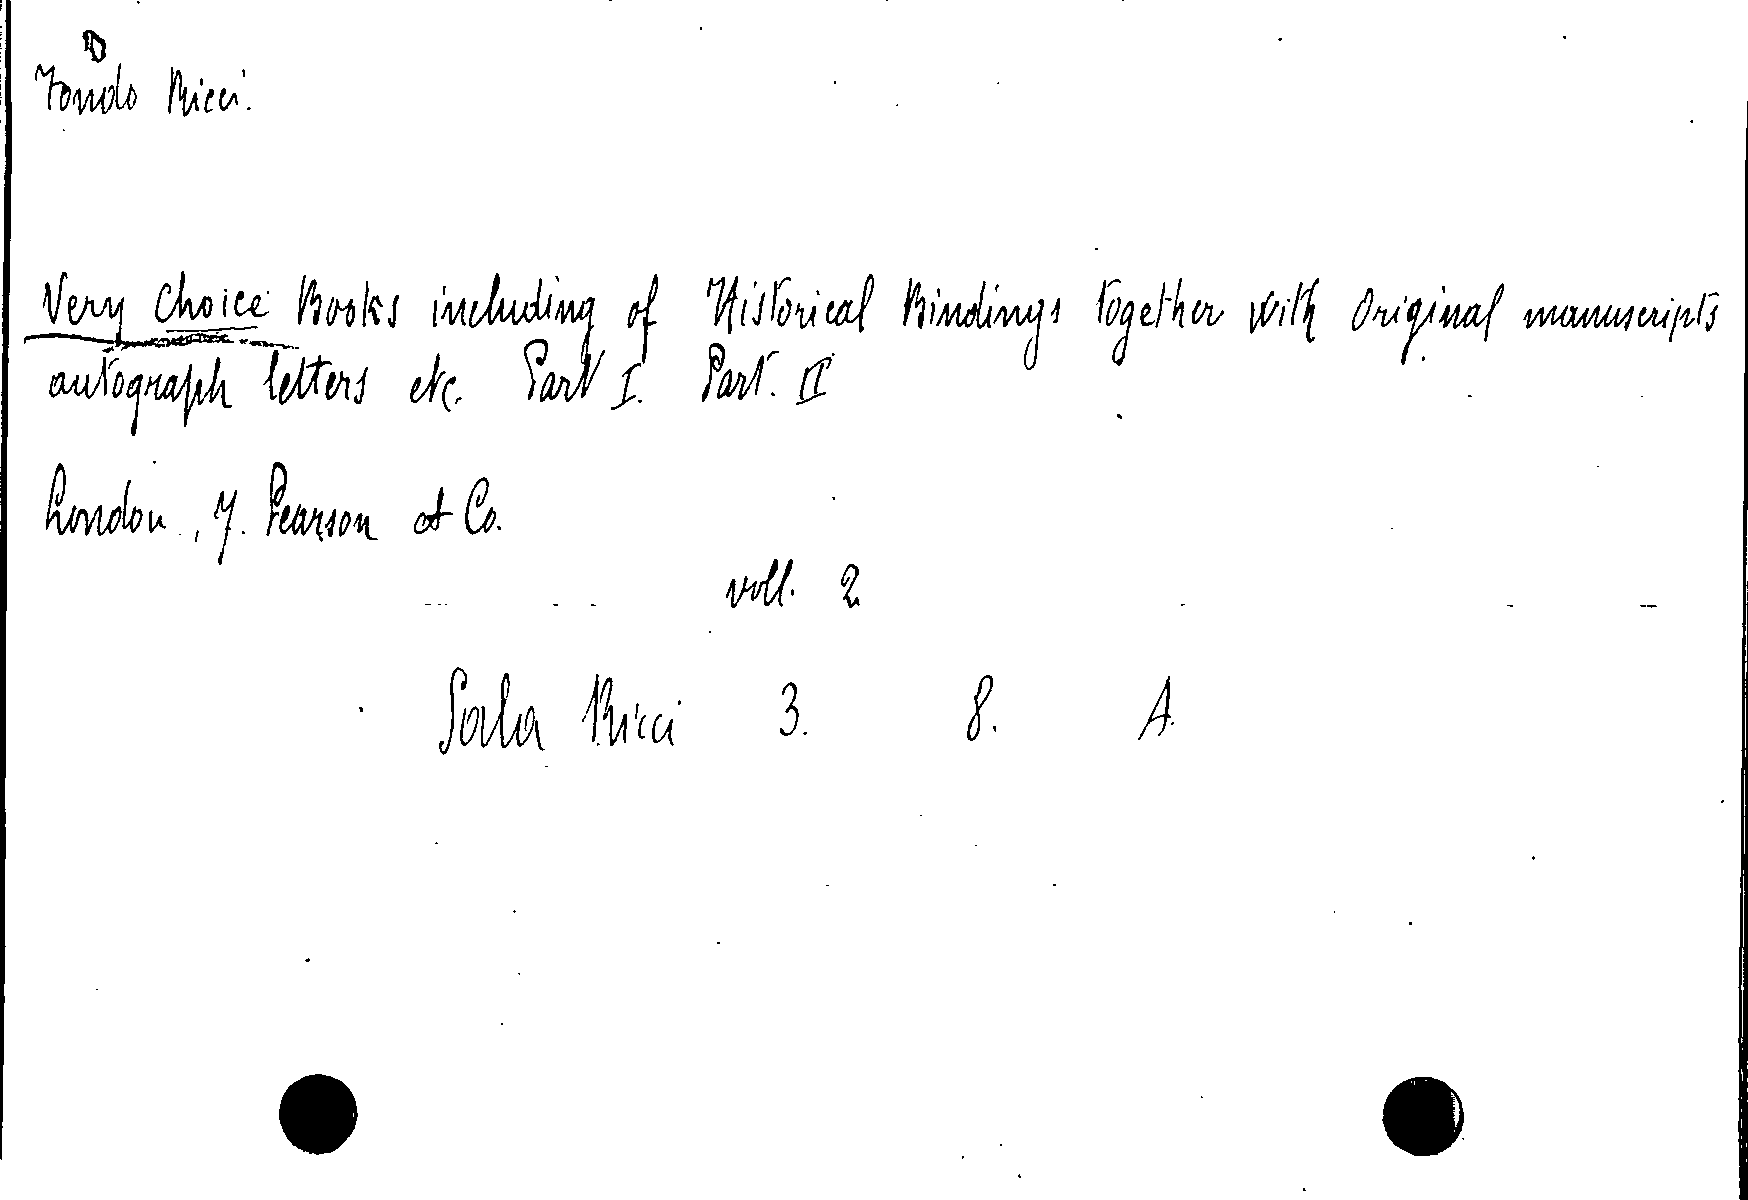 Fondo Ricci.
Very Choice Books including of Historical Bindings together with Original manuscripts
autograph letters etc. Part I. Part. II
London, J. Pearson et Co.
voll. 2
Sala Ricci 3. 8. A.